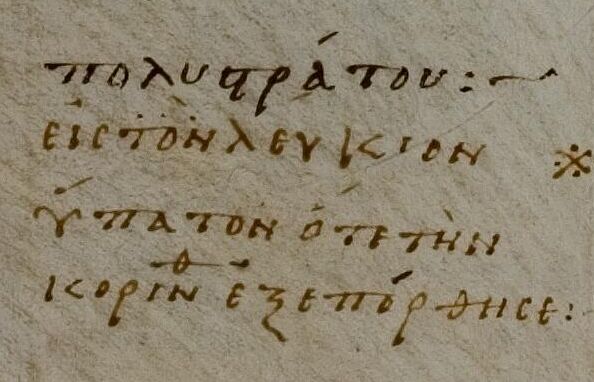 πολυϛράτου :~
εἰς τὸν λεύκιον ※
ὕπατον ὅτε τὴν
κορινθ ἐξεπόρθησε :